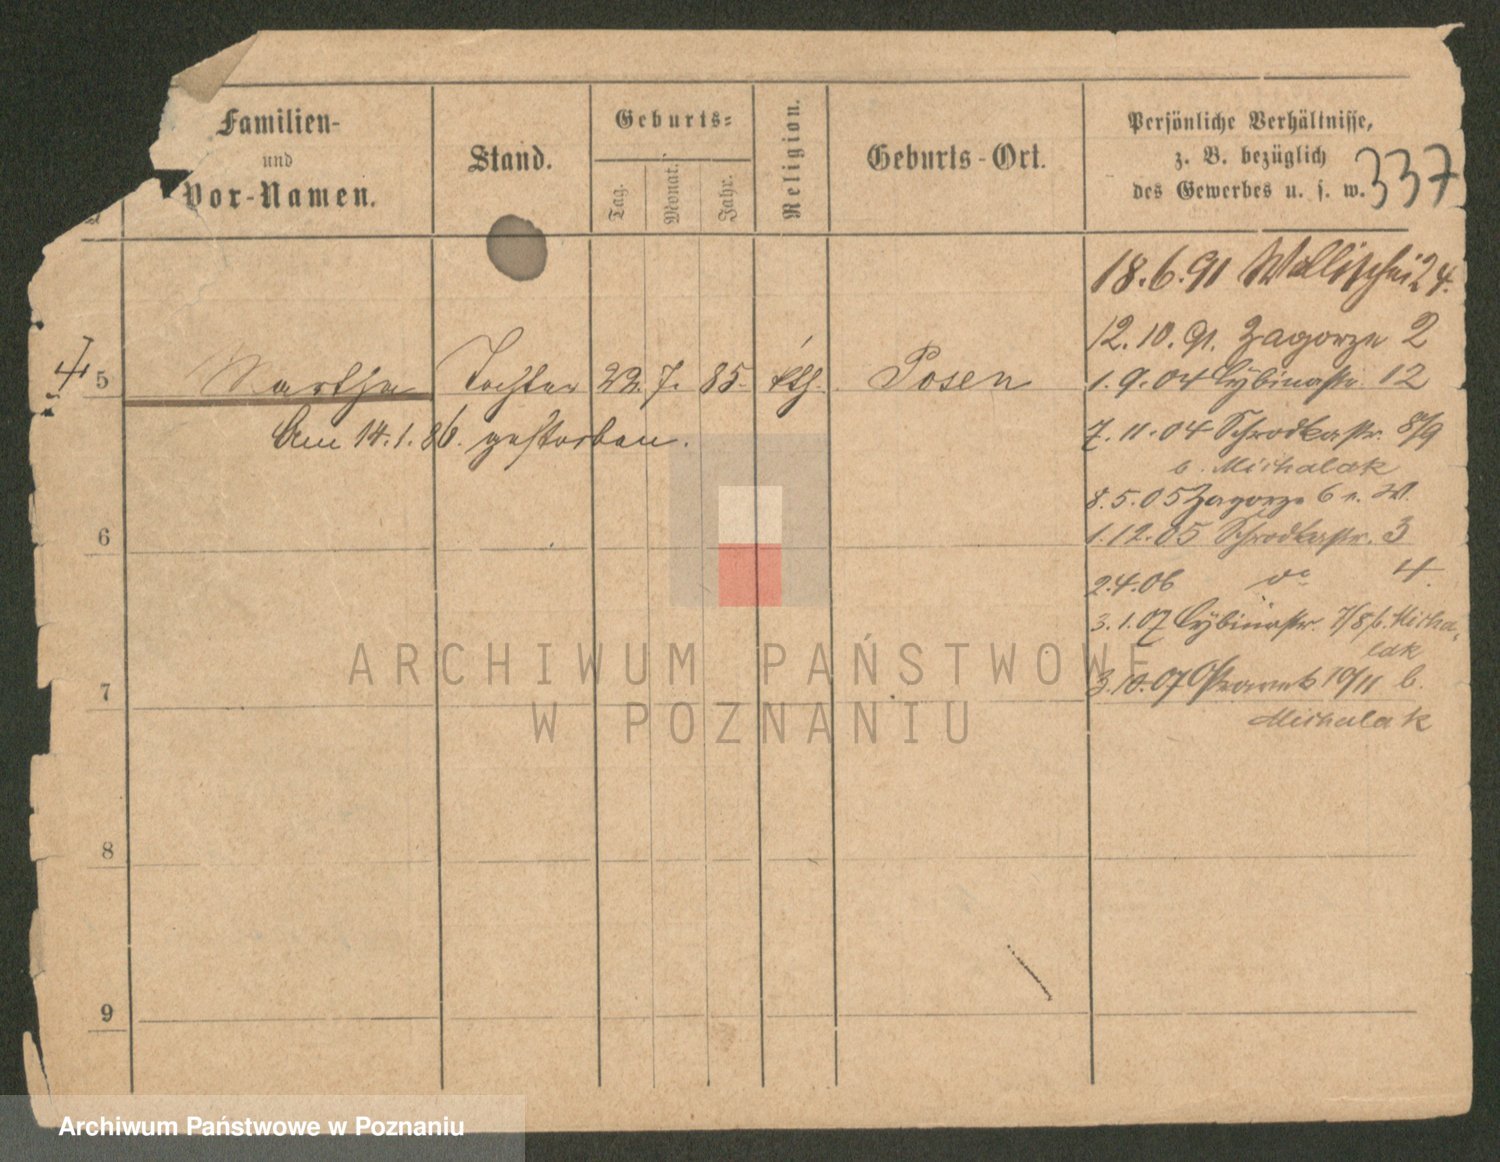 Familien-
und
Vor-Namen.
Stand.
Geburts-
Tag.
Monat.
Jahr.
Religion.
Geburts-Ort.
Persönliche Verhältnisse,
z. B. bezüglich
des Gewerbes u. s. w.
337
18.6.91 Wallischei 24.
12.10.91. Zagorze 2
5 Martha Tochter 22. 7. 85. kth. Posen
1.9.04 Cybinastr. 12
Am 14.1.86. gestorben.
7.11.04 Schrodkastr. 8/9
b. Michalak
8.5.05 Zagorze 6 b. W.
6
1.12.05 Schrodkastr. 3
2.4.06 do 4.
3.1.07 Cybinastr. 7/8 b. Micha-
lak
7
3.10.07 10/11 b.
Michalak
8
9
ARCHIWUM PAŃSTWOWE
W POZNANIU
Archiwum Państwowe w Poznaniu